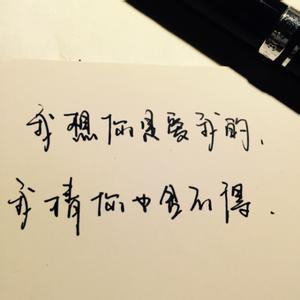 我想你是爱我的,
我猜你也舍不得.